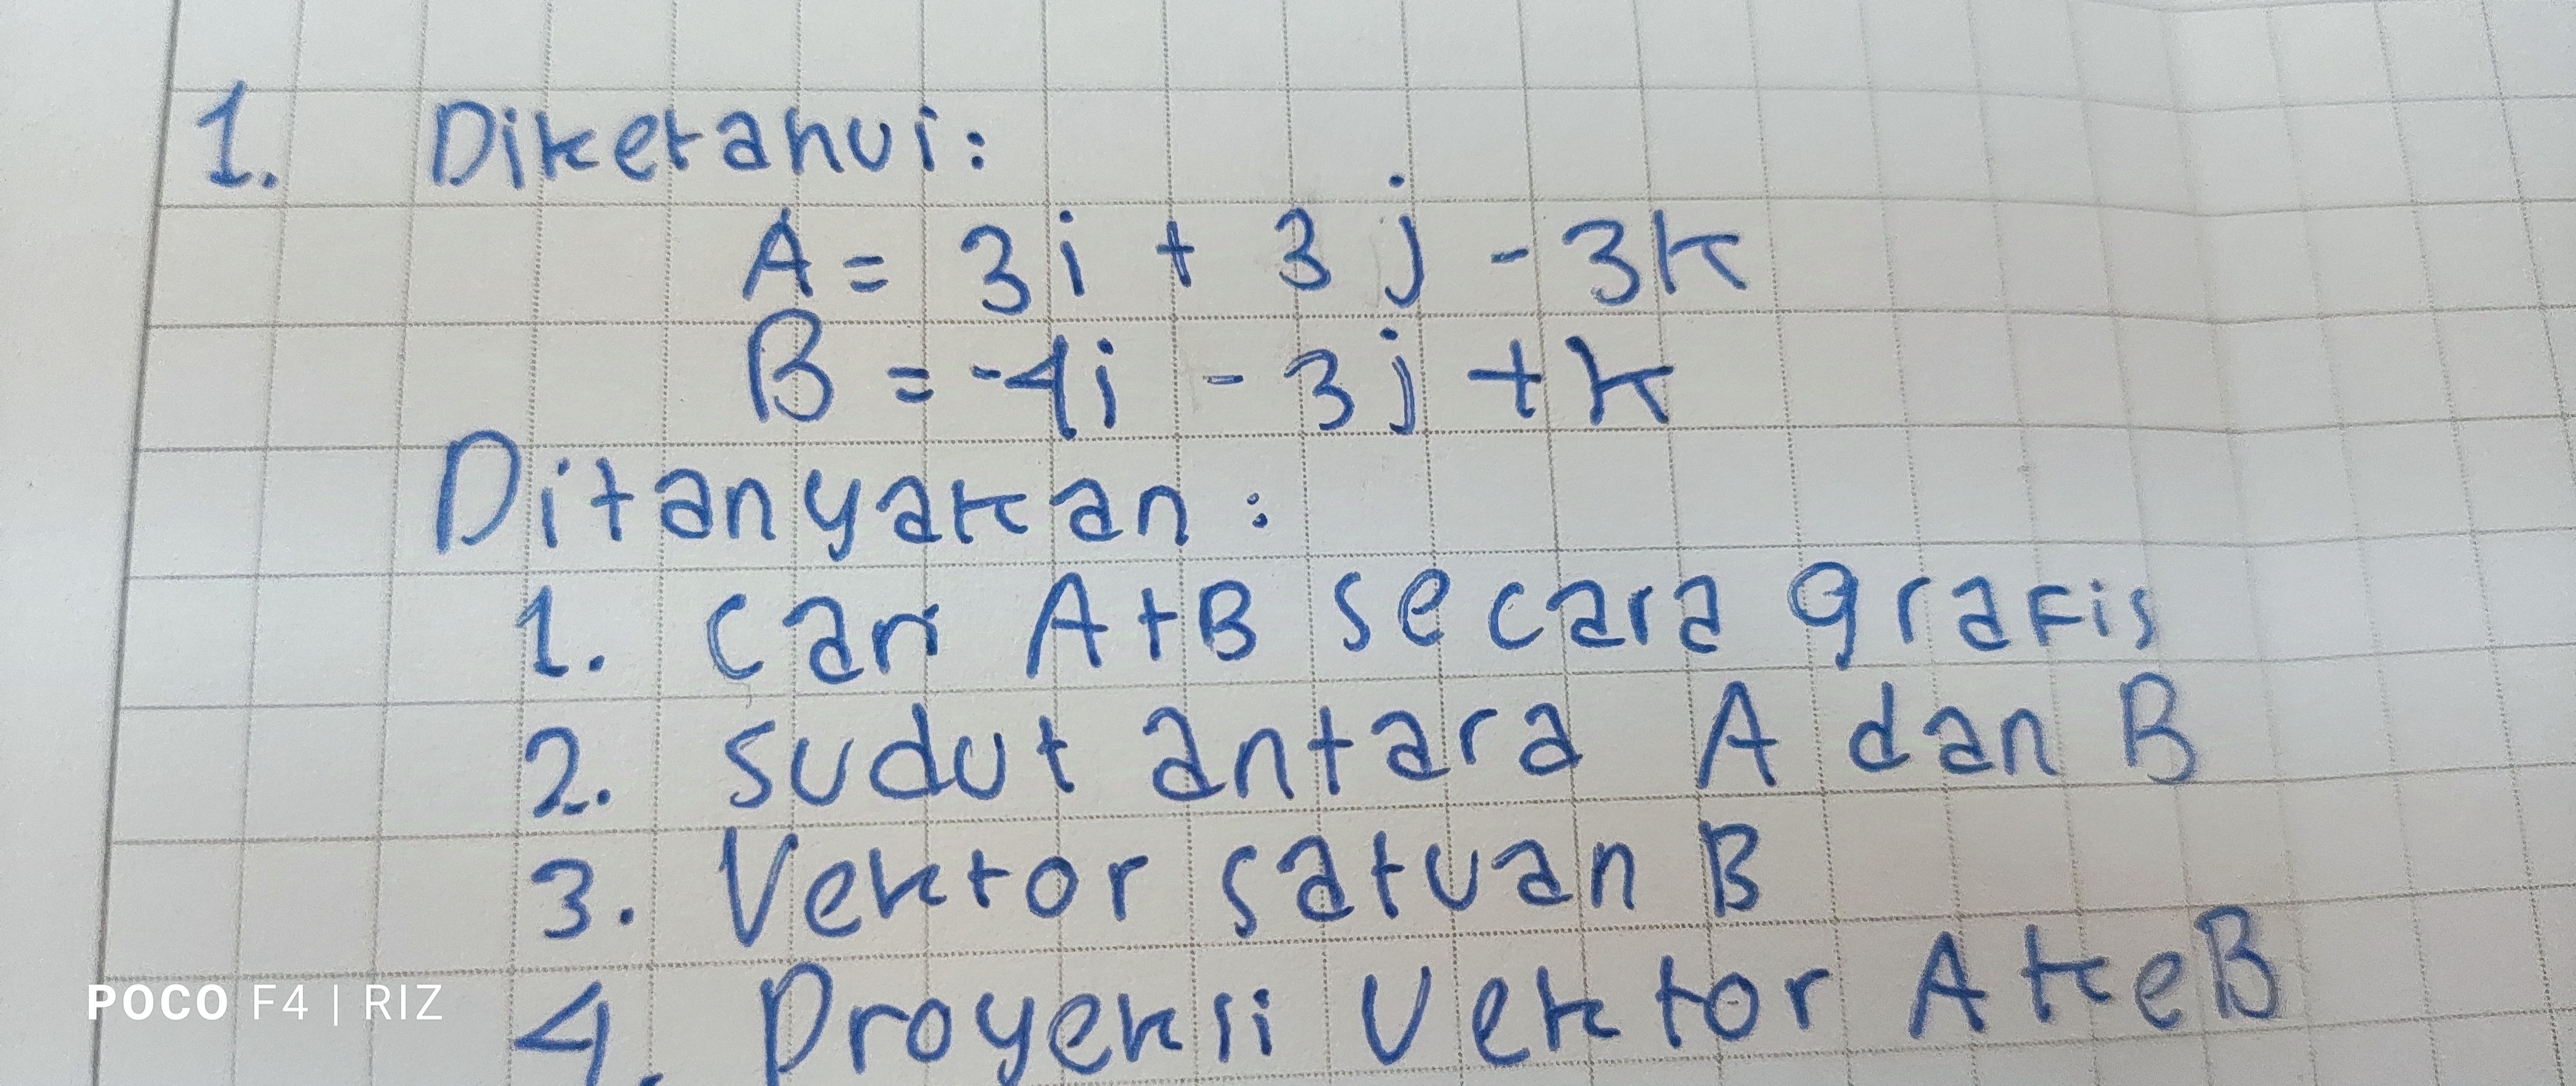 1. Diketahui:
A = 3i + 3j - 3k
B = -4i - 3j + k
Ditanyakan :
1. Cari A+B secara grafis
2. Sudut antara A dan B
3. Vektor satuan B
4. Proyeksi Vektor A ke B
POCO F4 | RIZ